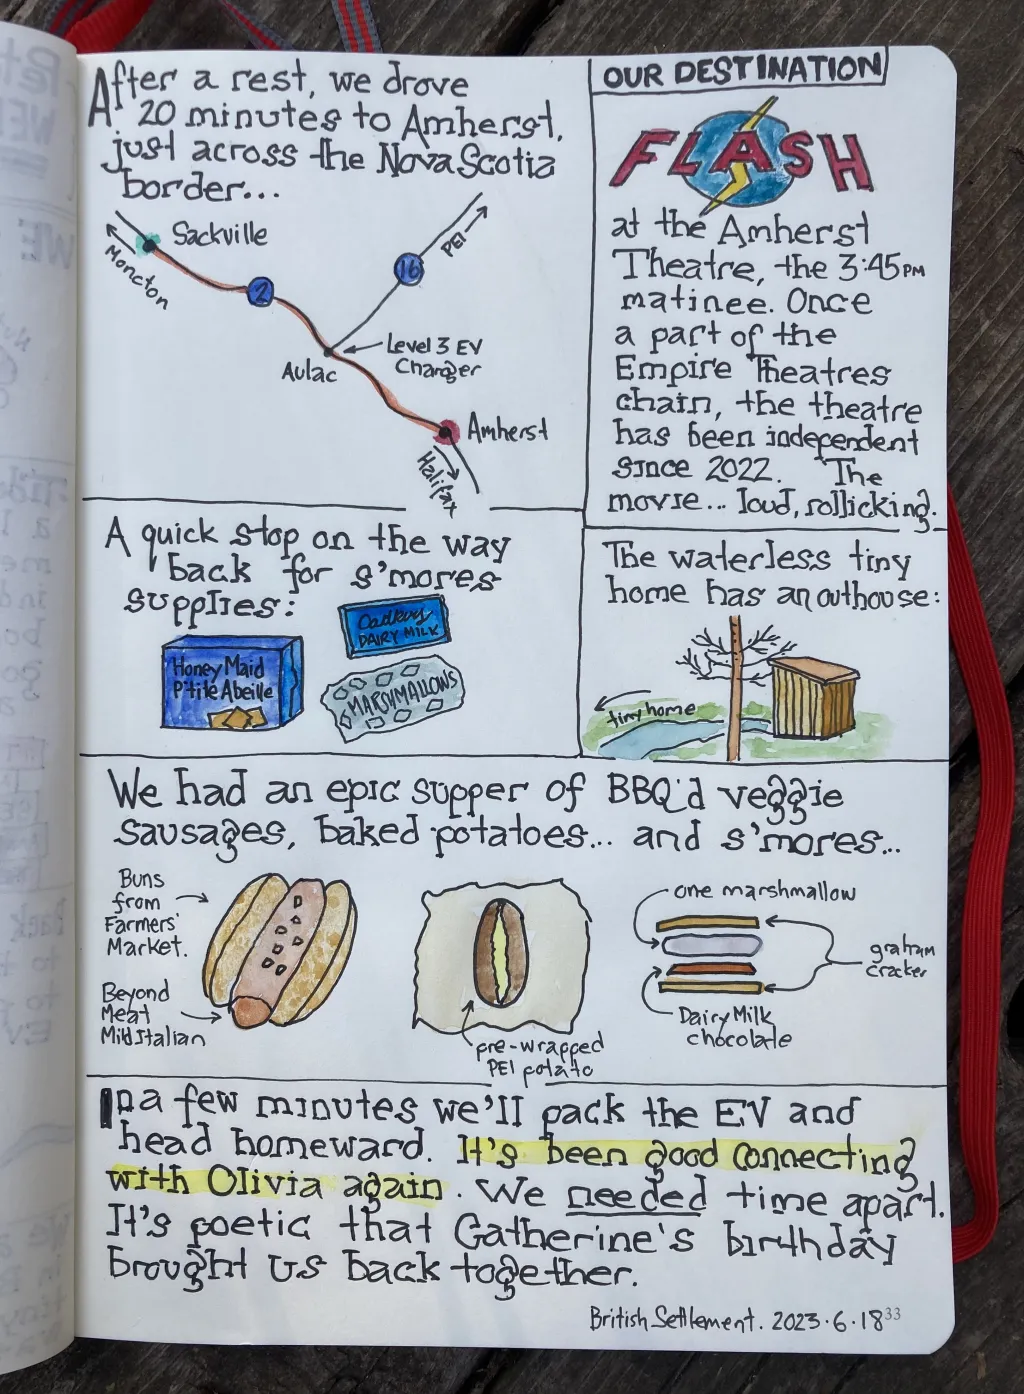 After a rest, we drove
20 minutes to Amherst,
just across the Nova Scotia
border...
Sackville
Moncton
2
16
PEI
Level 3 EV
Charger
Aulac
Amherst
Halifax
OUR DESTINATION
FLASH
at the Amherst
Theatre, the 3:45PM
matinee. Once
a part of the
Empire Theatres
chain, the theatre
has been independent
since 2022. The
movie... loud, rollicking.
A quick stop on the way
back for s'mores
supplies:
Honey Maid
P'tite Abeille
Cadbury
DAIRY MILK
MARSHMALLOWS
The waterless tiny
home has an outhouse:
tiny home
We had an epic supper of BBQ'd veggie
sausages, baked potatoes... and s'mores...
Buns
from
Farmers'
Market.
Beyond
Meat
Mild Italian
pre-wrapped
PEI potato
one marshmallow
graham
cracker
Dairy Milk
chocolate
In a few minutes we'll pack the EV and
head homeward. It's been good connecting
with Olivia again. We needed time apart.
It's poetic that Catherine's birthday
brought us back together.
British Settlement. 2023.6.18
33